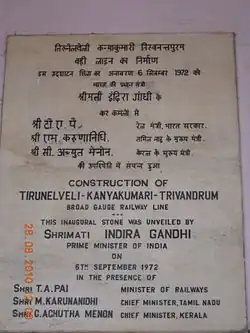 तिरुनेलवेली कन्याकुमारी तिरुवनन्तपुरम
बड़ी लाइन का निर्माण
इस उद्घाटन शिला का अनावरण 6 सितम्बर 1972 को
भारत की प्रधान मंत्री
श्रीमती इंदिरा गांधी के
कर कमलों से
श्री टी. ए. पै रेल मंत्री, भारत सरकार.
श्री एम. करुणानिधि, तमिल नाडु के मुख्य मंत्री
श्री सी. अच्युत मेनोन. केरल के मुख्य मंत्री
की उपस्थिति में संपन्न हुआ
CONSTRUCTION OF
TIRUNELVELI-KANYAKUMARI-TRIVANDRUM
BROAD GAUGE RAILWAY LINE
THIS INAUGURAL STONE WAS UNVEILED BY
SHRIMATI INDIRA GANDHI
PRIME MINISTER OF INDIA
ON
6TH SEPTEMBER 1972
IN THE PRESENCE OF
SHRI T.A.PAI MINISTER OF RAILWAYS
SHRI M.KARUNANIDHI CHIEF MINISTER, TAMIL NADU
SHRI C.ACHUTHA MENON CHIEF MINISTER, KERALA